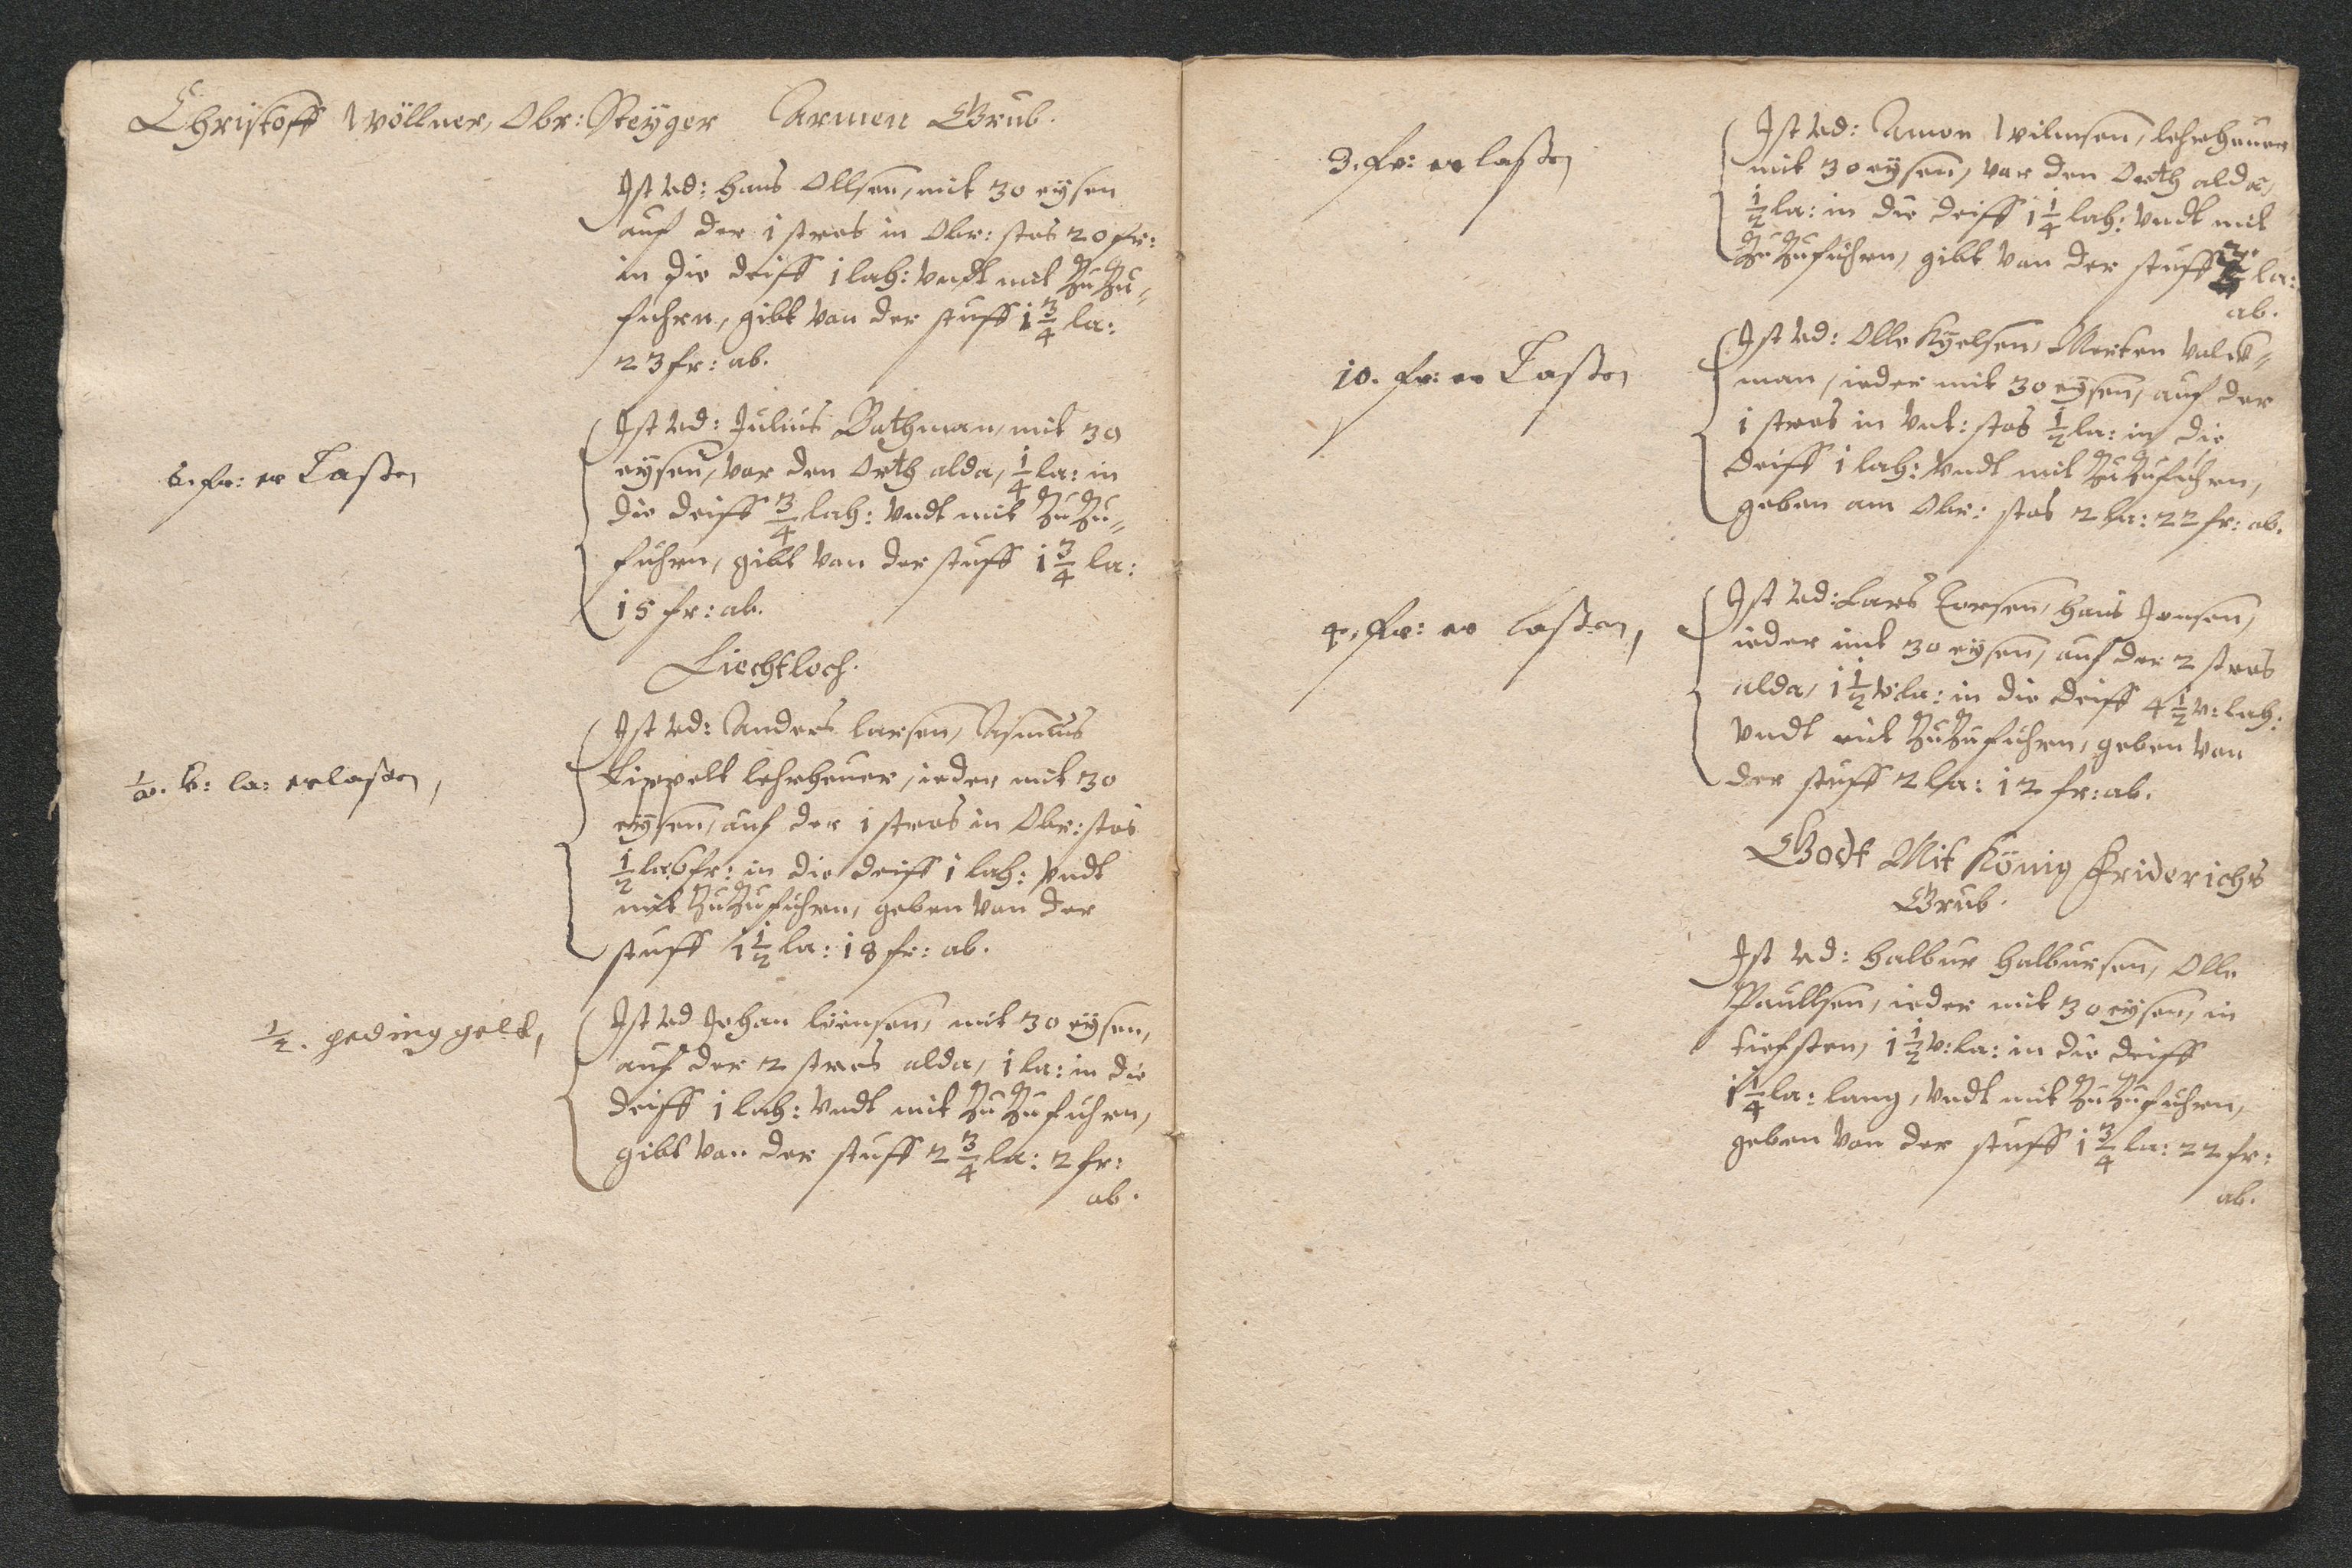 Christoff Wöllner, Obr: Steÿger Armen Grub.
Ist vd: Hans Ollsen, mit 30 eÿsen
auf der 1 stros in Obr: stos 20 fr:
in die deiff 1 lah: vndt mit ZuZu-
fuhrn, gibt von der stuff 1 3/4 la:
23 fr: ab.
6. fr: er Laßen
Ist vd: Julius Bathman, mit 30
eÿsen, vor den Orth alda, 1/4 la: in
die deiff 3/4 lah: vndt mit ZuZu-
fuhren, gibt von der stuff 1 3/4 la:
15 fr: ab.
Liechtloch.
1/2. v: la: erlaßen,
Ist vd: Anders Larsen, Asmus
Lippelt lehrheuer, ieder mit 30
eÿsen, auf der 1 stros in Obr: stos
1/2 la: 6 fr: in die deiff 1 lah: vndt
mit ZuZufuhren, geben von der
stuff 1 1/2 la: 18 fr: ab.
1/2. geding gelt,
Ist vd Johan Iversen, mit 30 eÿsen,
auf der 2 stros alda, 1 la: in die
deiff 1 lah: vndt mit ZuZufuhren,
gibt von der stuff 2 3/4 la: 2 fr:
ab.
3. fr: er laßen
Ist vd: Amon Wilmsen, lehrheuer
mit 30 eÿsen, vor den Orth alda,
1/2 la: in die deiff 1 1/4 lah: vndt mit
ZuZufuhren, gibt von der stuff la:
ab.
10. fr: er Laßen
Ist vd: Olle Kÿelsen, Merten Valck-
man, ieder mit 30 eÿsen, auf der
1 stros in Vnt: stos 1/2 la: in die
deiff 1 lah: vndt mit ZuZufuhren,
geben am Obr: stos 2 la: 22 fr: ab.
4. fr: er laßen,
Ist vd: Lars Corsen, Hans Jonsen,
ieder mit 30 eÿsen, auf der 2 stros
alda, 1 1/2 v: la: in die deiff 4 1/2 v: lah:
vndt mit ZuZufuhren, geben von
der stuff 2 la: 12 fr: ab.
Godt Mit König Friderichs
Grub.
Ist vd: Halbur Halbursen, Olle
Paullsen, ieder mit 30 eÿsen, in
tiefsten, 1 1/2 v: la: in die deiff
1 1/4 la: lang, vndt mit ZuZufuhren,
geben von der stuff 1 3/4 la: 22 fr:
ab.